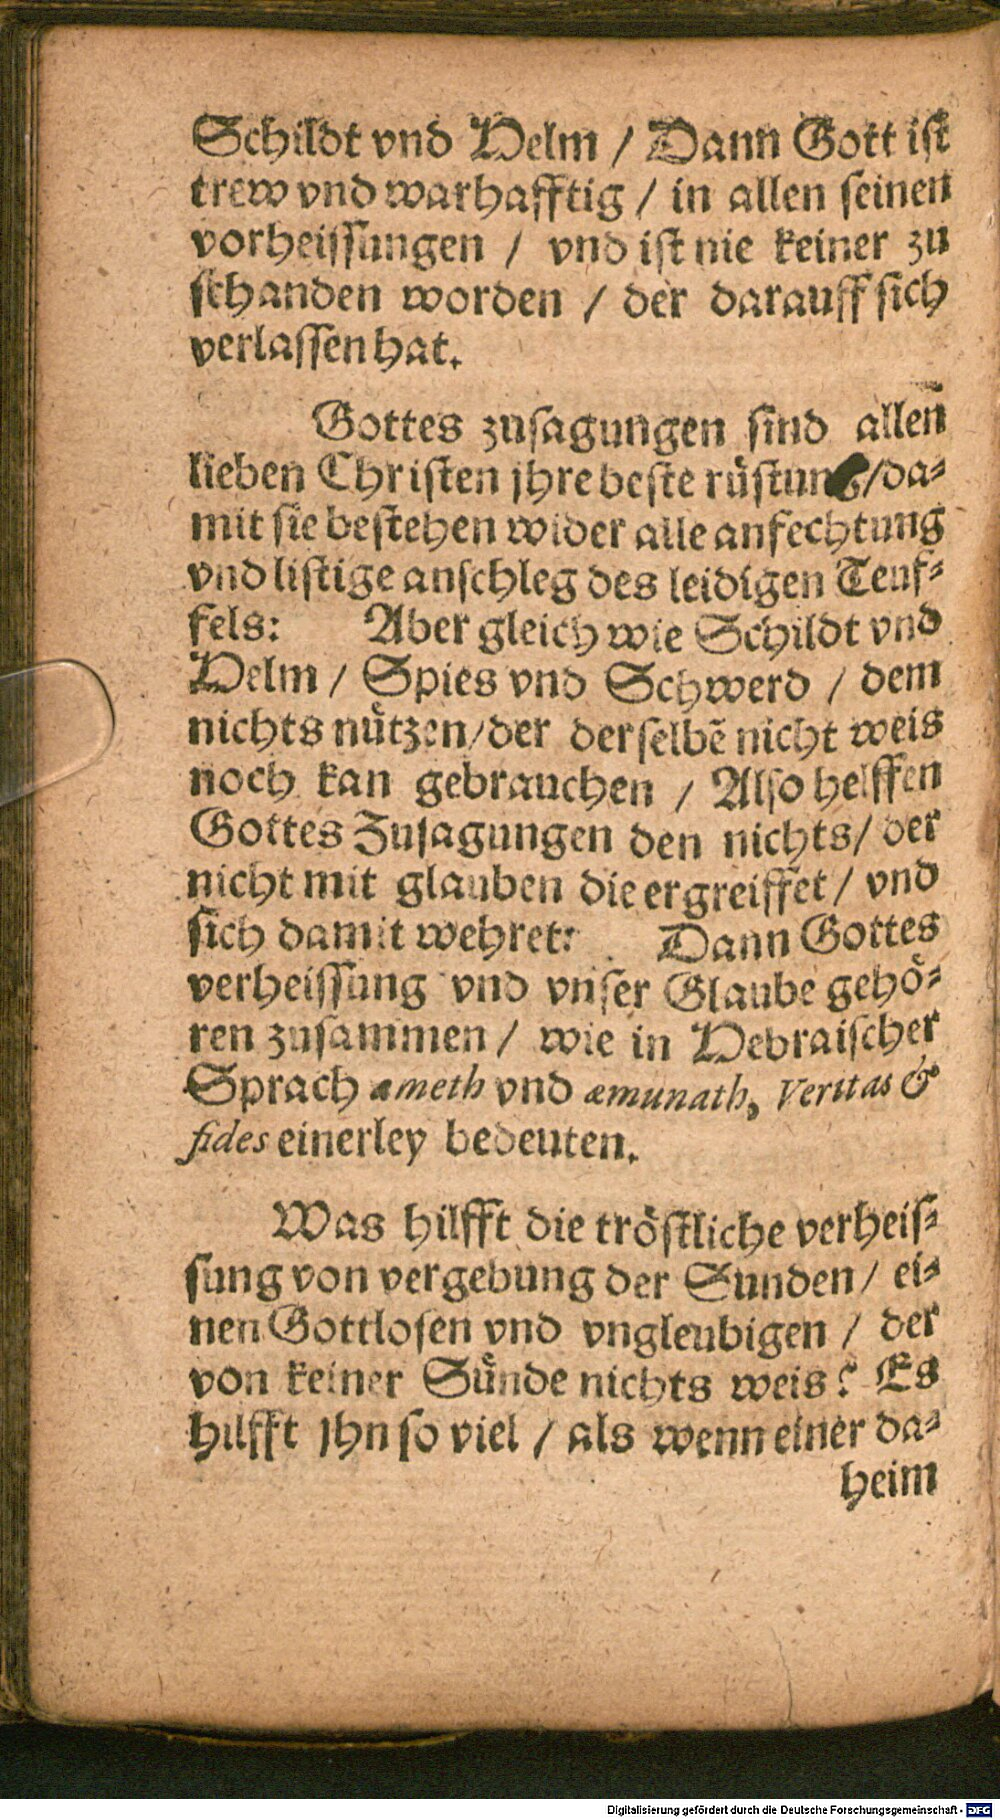 Schildt vnd Helm / Dann Gott ist
trew vnd warhafftig / in allen seinen
vorheissungen / vnd ist nie keiner zu
schanden worden / der darauff sich
verlassen hat.
Gottes zusagungen sind allen
lieben Christen jhre beste rüstung/da-
mit sie bestehen wider alle anfechtung
vnd listige anschleg des leidigen Teuf-
fels: Aber gleich wie Schildt vnd
Helm / Spies vnd Schwerd / dem
nichts nützen/der derselbẽ nicht weis
noch kan gebrauchen / Also helffen
Gottes Zusagungen den nichts/ der
nicht mit glauben die ergreiffet / vnd
sich damit wehret: Dann Gottes
verheissung vnd vnser Glaube gehö-
ren zusammen / wie in Hebraischer
Sprach æmeth vnd æmunath, Veritas &
fides einerley bedeuten.
Was hilfft die tröstliche verheis-
sung von vergebung der Sunden / ei-
nen Gottlosen vnd vngleubigen / der
von keiner Sünde nichts weis? Es
hilfft jhn so viel / als wenn einer da-
heim
Digitalisierung gefördert durch die Deutsche Forschungsgemeinschaft - DFG